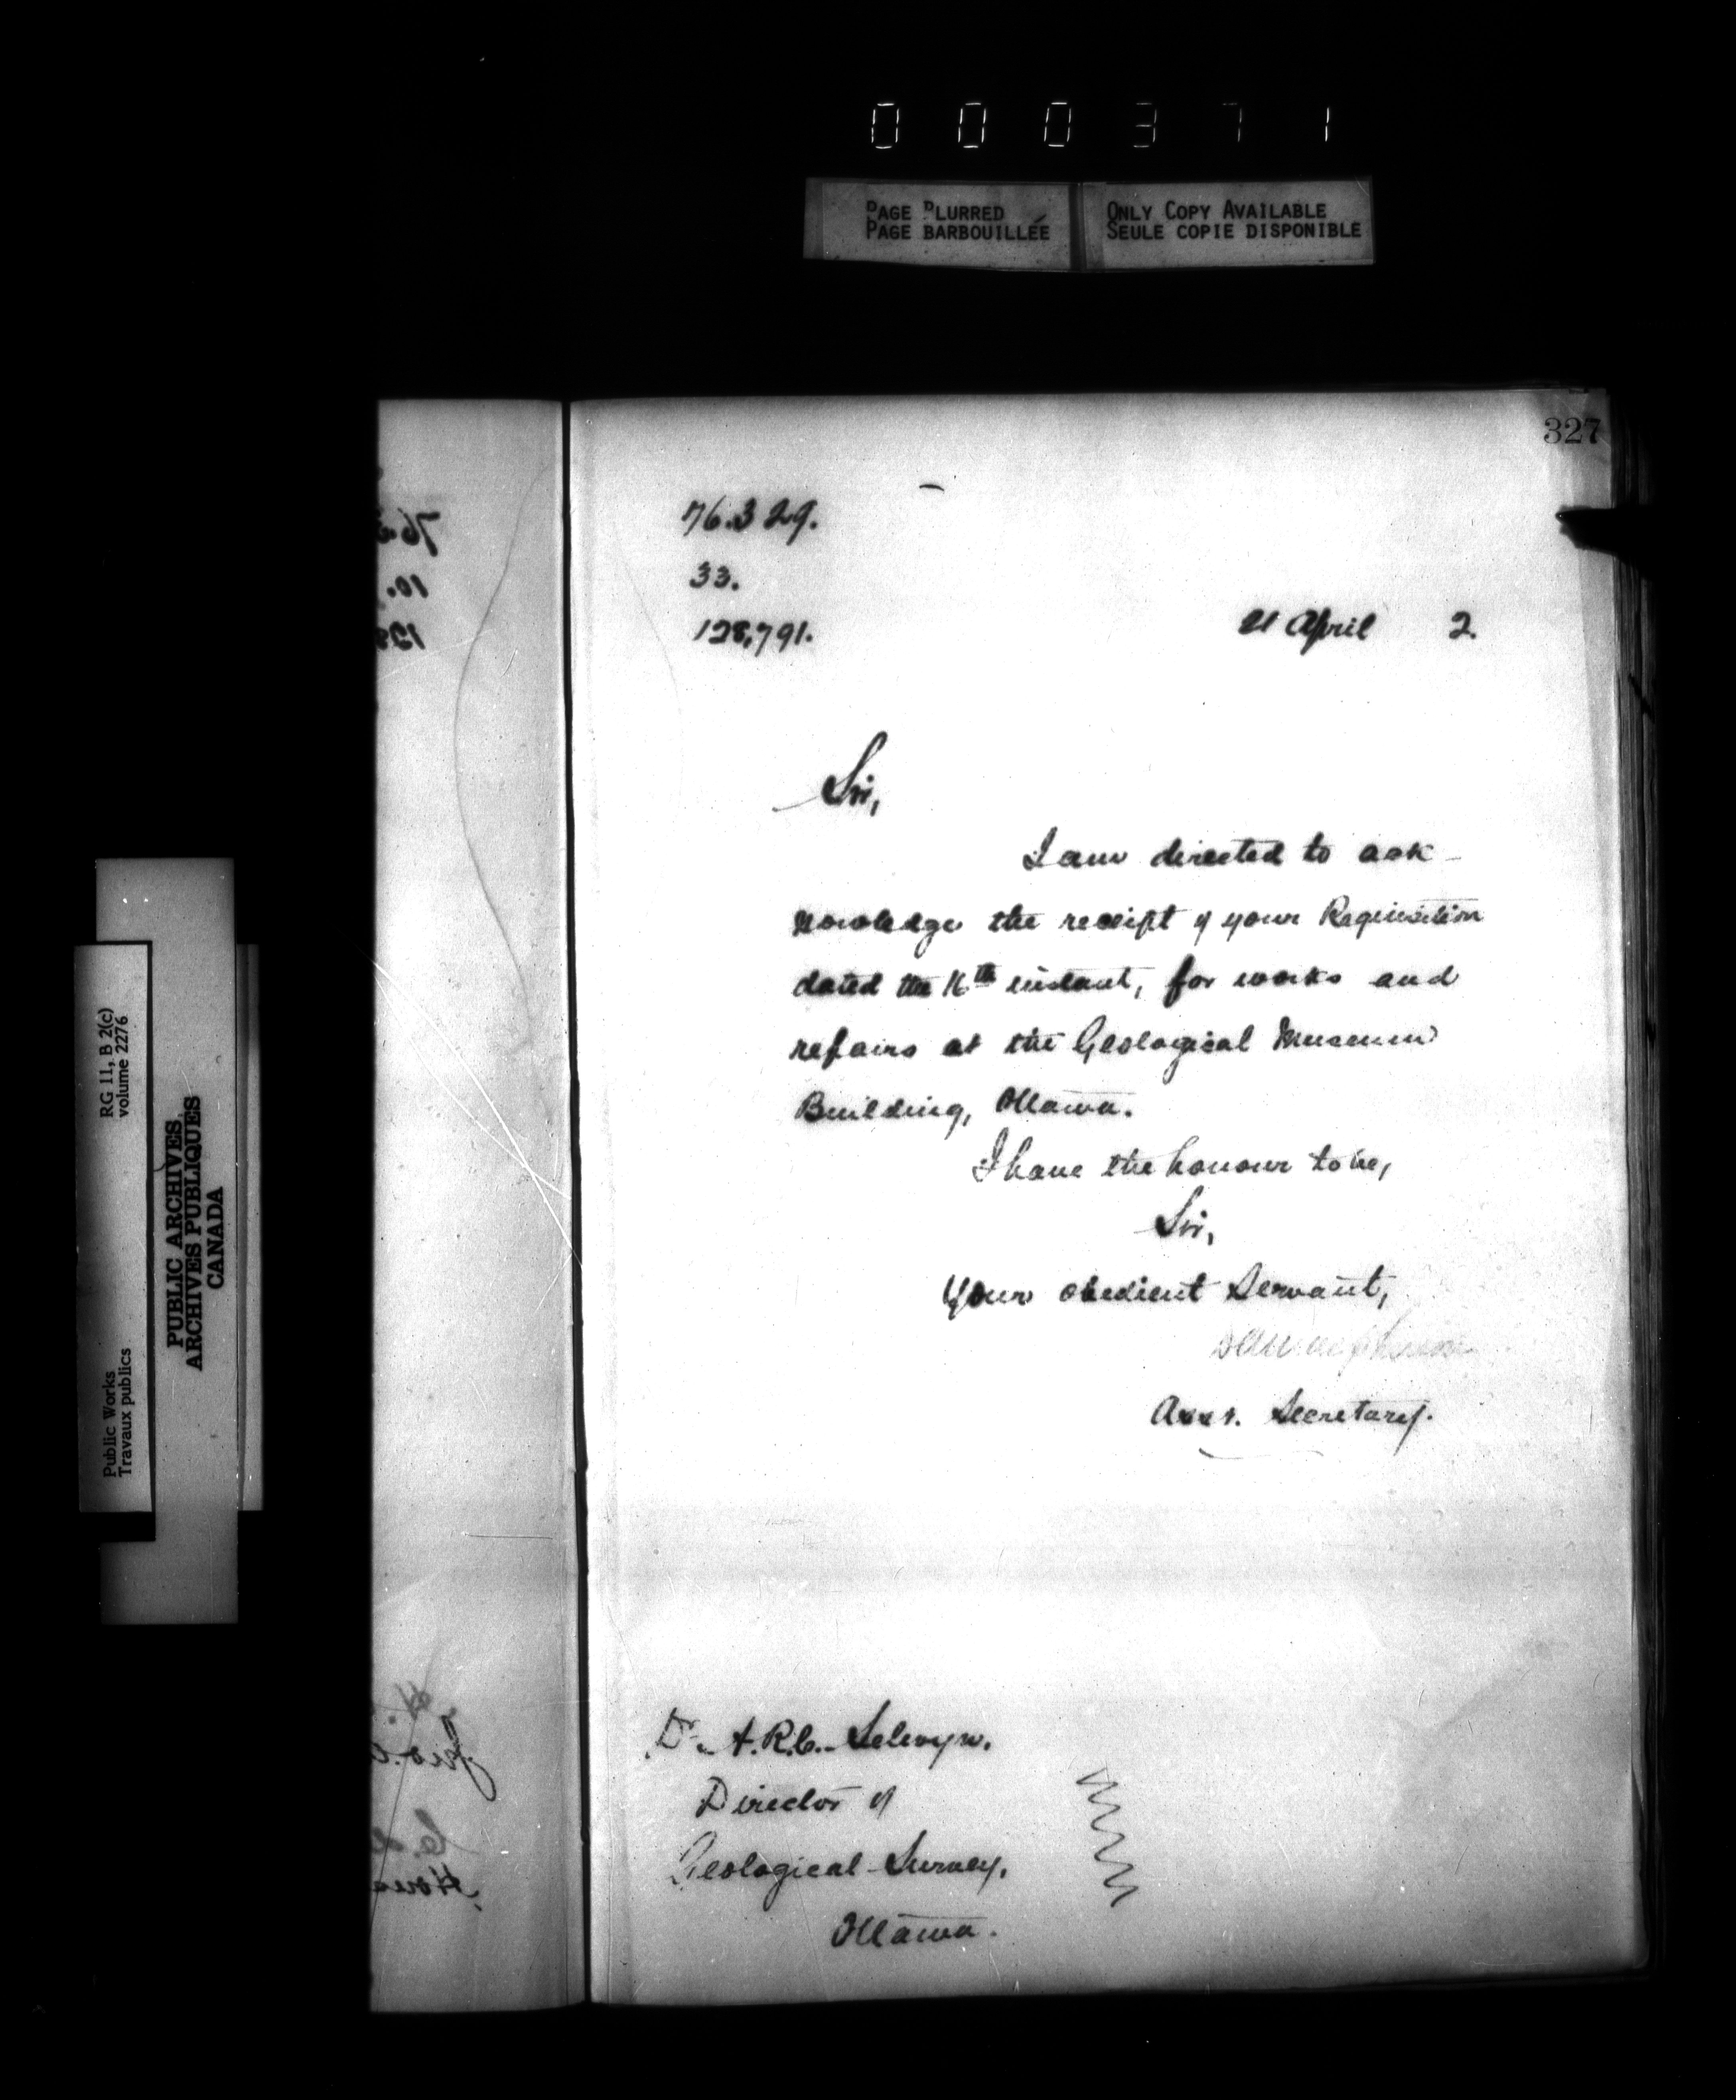 000371
PAGE BLURRED
PAGE BARBOUILLÉE
ONLY COPY AVAILABLE
SEULE COPIE DISPONIBLE
327
76.329.
33.
128,791.
21 April 2.
Sir,
I am directed to ack-
nowledge the receipt of your Requisition
dated the 16th instant, for works and
repairs at the Geological Museum
Building, Ottawa.
I have the honour to be,
Sir,
Your obedient Servant,
Asst. Secretary.
Dr. A.R.C. Selwyn.
Director of
Geological Survey.
Ottawa.
RG 11, B 2(c)
volume 2276
PUBLIC ARCHIVES
ARCHIVES PUBLIQUES
CANADA
Public Works
Travaux publics